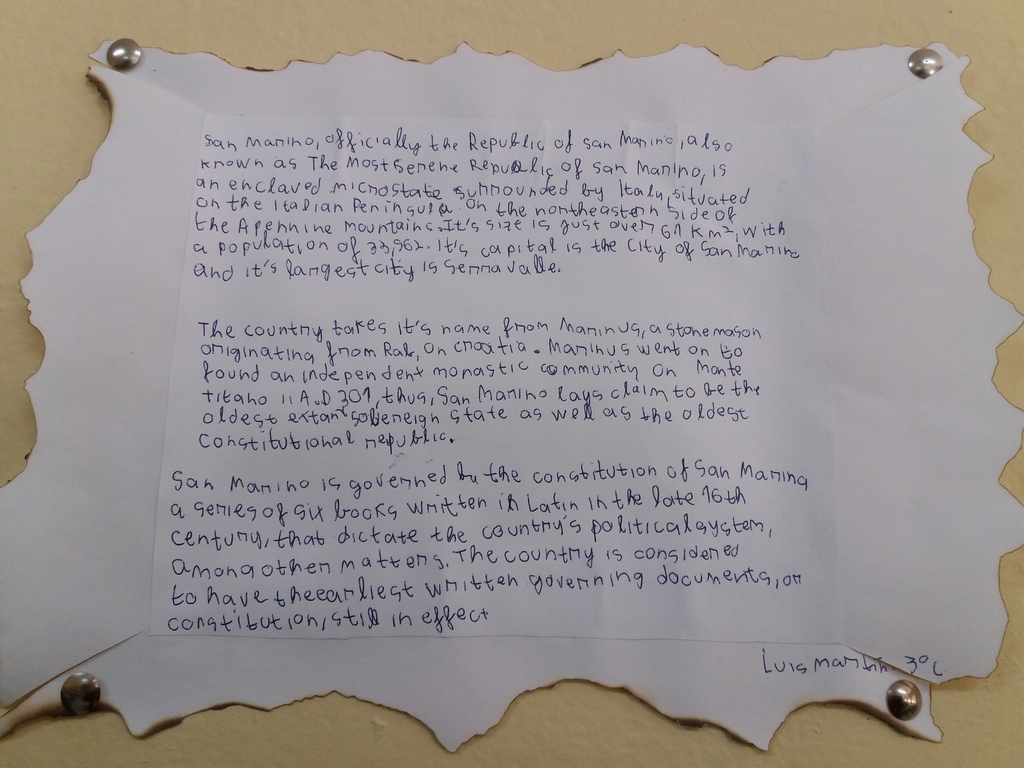 San Marino, officially the Republic of San Marino, also
known as The Most Serene Republic of San Marino, is
an enclaved microstate surrounded by Italy, situated
on the Italian Peninsula on the northeastern side of
the Apennine mountains. It's size is just over 61 Km², with
a population of 33,562. It's capital is the City of San Marino
and it's largest city is Serravalle.
The country takes it's name from Marinus, a stone mason
originating from Rab, on Croatia. Marinus went on to
found an independent monastic community on Monte
Titano ii A.D 301, thus, San Marino lays claim to be the
oldest extant sobereign state as well as the oldest
constitutional republic.
San Marino is governed by the constitution of San Marino
a series of six books written in Latin in the late 16th
century, that dictate the country's political system,
among other matters. The country is considered
to have the earliest written governing documents, or
constitution, still in effect
Luis Martín 3ºC